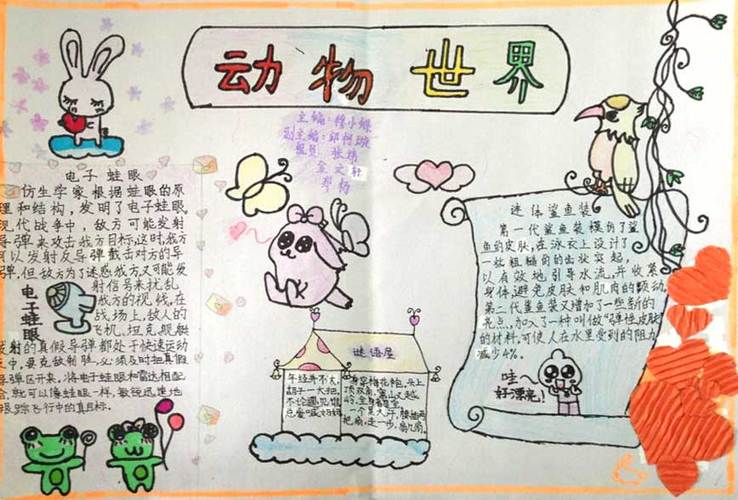 动物世界
主编：穆小蝶
副主编：邱柯璇
组员：张炜
金文轩
郑杨
电子蛙眼
仿生学家根据蛙眼的原
理和结构，发明了电子蛙眼。
现代战争中，敌方可能发射
导弹来攻击我方目标，这时，我方
可以发射反导弹截击对方的导
弹，但敌方为了迷惑我方又可能发
射信号来扰乱
我方的视线，在
战场上，敌人的
飞机，坦克，舰艇
发射的真假导弹都处于快速运动
之中，要克敌制胜，必须及时把真假
导弹区开来，将电子蛙眼和雷达相配
合，就可以像蛙眼一样，敏锐迅速地
跟踪飞行中的真目标。
电子蛙眼
谜语屋
年纪并不大，
胡子一大把，
不论遇见谁，
总爱喊妈妈
身穿梅花袍，头上
顶双角，
全身有茸毛
迷体鲨鱼装
第一代鲨鱼装模仿了鲨
鱼的皮肤，在泳衣上设计了
一些粗糙的齿状突起，
以有效地引导水流，并收紧
身体，避免皮肤和肌肉的颤动。
第二代鲨鱼装又增加了一些新的
亮点，加入了一种叫做“弹性皮肤”
的材料，可使人在水里受到的阻力
减少4%。
哇
好漂亮！